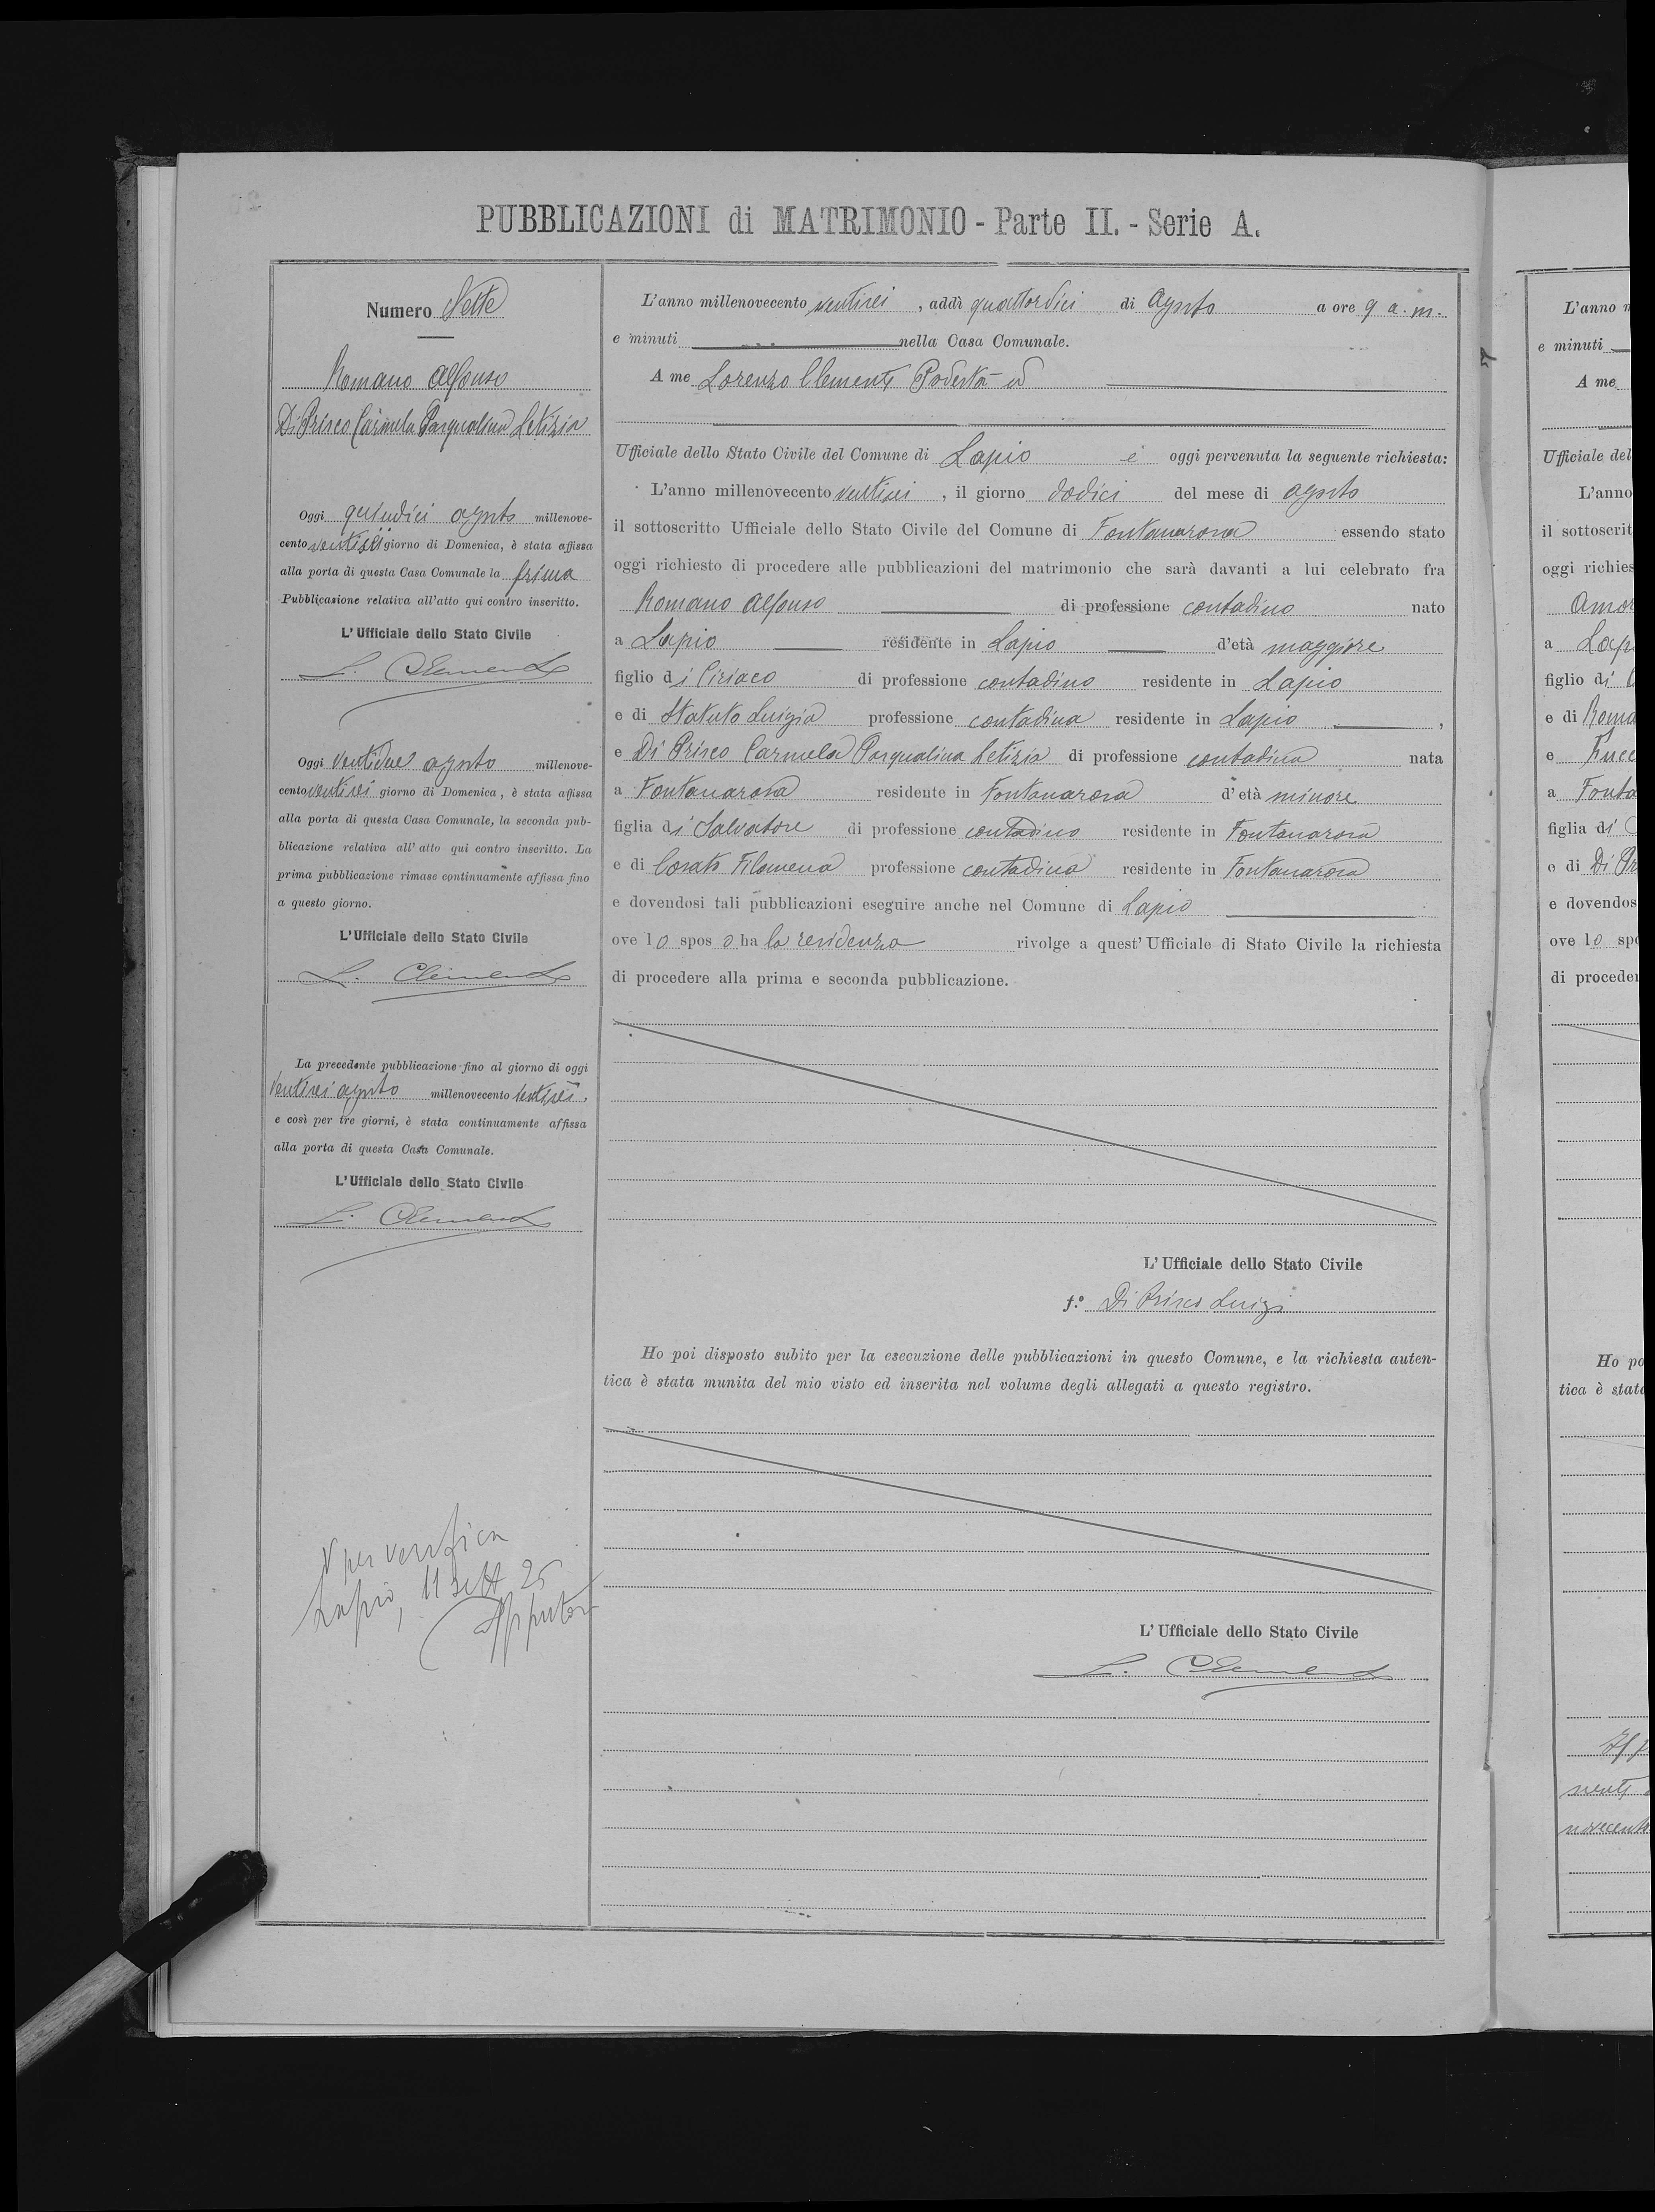 PUBBLICAZIONI di MATRIMONIO - Parte II. - Serie A.
Numero Sette
Romano Alfonso
Di Prisco Carmela Pasqualina Letizia
Oggi quindici agosto millenove-
cento ventisei giorno di Domenica, è stata affissa
alla porta di questa Casa Comunale la prima
Pubblicazione relativa all'atto qui contro inscritto.
L'Ufficiale dello Stato Civile
L. Clemente
Oggi ventidue agosto millenove-
cento ventisei giorno di Domenica, è stata affissa
alla porta di questa Casa Comunale, la seconda pub-
blicazione relativa all'atto qui contro inscritto. La
prima pubblicazione rimase continuamente affissa fino
a questo giorno.
L'Ufficiale dello Stato Civile
L. Clemente
La precedente pubblicazione fino al giorno di oggi
ventisei agosto millenovecento ventisei,
e così per tre giorni, è stata continuamente affissa
alla porta di questa Casa Comunale.
L'Ufficiale dello Stato Civile
L. Clemente
V per verifica
Lapio, 11 sett 26
L'anno millenovecento ventisei, addì quattordici di Agosto a ore 9 a.m.
e minuti nella Casa Comunale.
A me Lorenzo Clemente Podestà ed
Ufficiale dello Stato Civile del Comune di Lapio è oggi pervenuta la seguente richiesta:
L'anno millenovecento ventisei, il giorno dodici del mese di agosto
il sottoscritto Ufficiale dello Stato Civile del Comune di Fontanarosa essendo stato
oggi richiesto di procedere alle pubblicazioni del matrimonio che sarà davanti a lui celebrato fra
Romano Alfonso di professione contadino nato
a Lapio residente in Lapio d'età maggiore
figlio di Ciriaco di professione contadino residente in Lapio
e di Statuto Luigia professione contadina residente in Lapio,
e Di Prisco Carmela Pasqualina Letizia di professione contadina nata
a Fontanarosa residente in Fontanarosa d'età minore
figlia di Salvatore di professione contadino residente in Fontanarosa
e di Cosato Filomena professione contadina residente in Fontanarosa
e dovendosi tali pubblicazioni eseguire anche nel Comune di Lapio
ove lo sposo ha la residenza rivolge a quest'Ufficiale di Stato Civile la richiesta
di procedere alla prima e seconda pubblicazione.
L'Ufficiale dello Stato Civile
f.º Di Prisco Luigi
Ho poi disposto subito per la esecuzione delle pubblicazioni in questo Comune, e la richiesta auten-
tica è stata munita del mio visto ed inserita nel volume degli allegati a questo registro.
L'Ufficiale dello Stato Civile
L. Clemente
L'anno
e minuti
A me
Ufficiale del
L'anno
il sottoscrit
oggi richies
a
figlio di
e di
e
a
figlia di
e di Di
e dovendos
ove lo spo
di proceder
Ho po
tica è stat